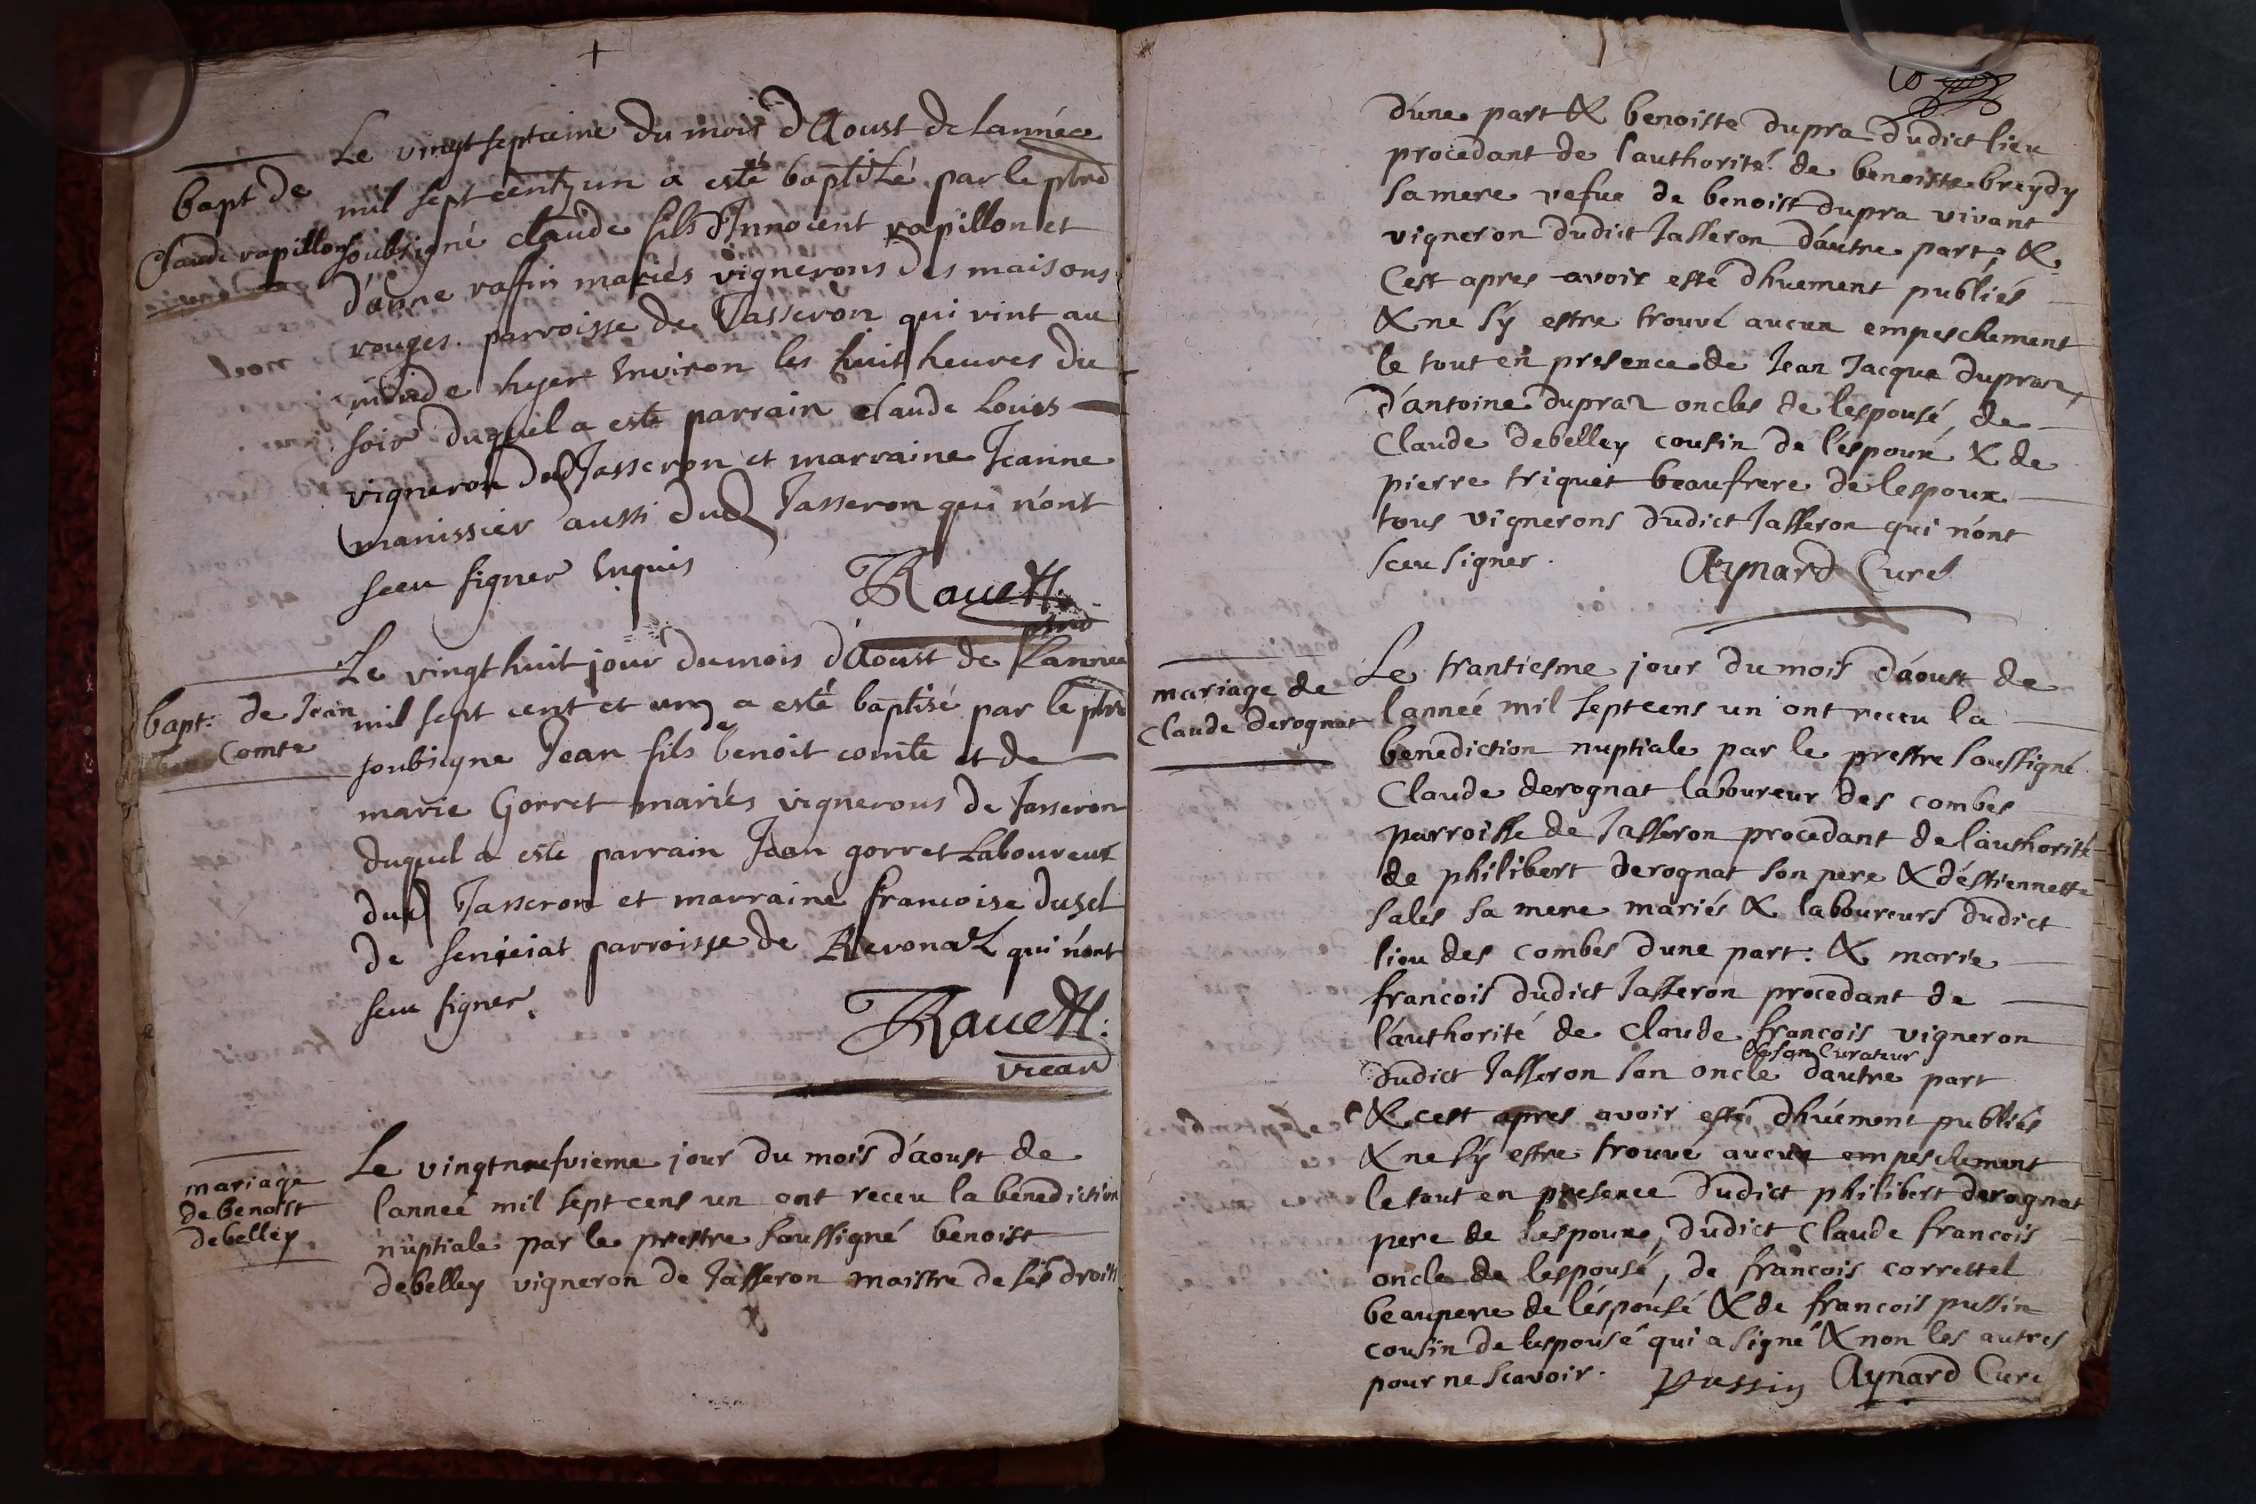 +
Le vingt septieme du mois d'Aoust de lannéee
bapt de
Claude rapillon
mil sept cent un a esté baptisé par le pbre
soubsigné claude fils d'Innocent rapillon et
d'anne raffin mariés vignerons des maisons
rouges parroisse de Jasseron qui vint au
monde hyer Environ les huit heures du
soir duquel a este parrain claude Louis
vigneron dud Jasseron et marraine Jeanne
manissier aussi dud Jasseron qui n'ont
sceu signer Enquis
Rauett
pbre
Le vingt huit jour du mois d'Aoust de l'annee
bapt. de Jean
Comte
mil sept cent et un a esté baptisé par le pbre
soubsigne Jean fils de benoit comte et de
marie Gorret mariés vignerons de Jasseron
duquel a esté parrain Jean gorret Laboureur
dud Jasseron et marraine francoise duset
de senissiat parroisse de Revonaz qui n'ont
sceu signer.
Rauett:
vicaire
mariage
de benoist
debelley
Le vingtneufvieme jour du mois d'aoust de
lanneé mil sept cens un ont receu la benediction
nuptiale par le prestre soussigné benoist
debelley vigneron de Jasseron maistre de ses droits
d'une part & benoiste dupra dudict lieu
procedant de l'authorité de benoiste breydy
sa mere vefue de benoist dupra vivant
vigneron dudict Jasseron d'autre part; &
Cest apres avoir esté dhuement publiés
& ne s'y estre trouvé aucun empeschement
le tout en presence de Jean Jacque dupraz,
d'antoine dupraz oncles de lespousé, de
Claude debelley cousin de l'espoux & de
pierre triquet beaufrere de lespoux
tous vignerons dudict Jasseron qui n'ont
sceu signer.
Aynard Curé
mariage de
claude derognat
Le trantiesme jour du mois d'aoust de
lanneé mil septcens un ont receu la
benediction nuptiale par le prestre soussigné
Claude derognat laboureur des combes
parroisse de Jasseron procedant de l'authorité
de philibert derognat son pere & d'éstiennette
sales sa mere mariés & laboureurs dudict
lieu des combes d'une part: & marie
francois dudict Jasseron procedant de
l'authorité de claude francois vigneron
dudict Jasseron son oncle & son curateur d'autre part
& cest apres avoir esté dhuement publiés
& ne s'y estre trouvé aucun empeschement
le tout en presence dudict philibert derognat
pere de lespoux, dudict Claude francois
oncle de lespousé, de francois correttel
beaupere de l'éspousé & de francois pussin
cousin de lespousé qui a signé & non les autres
pour ne scavoir.
Pussin Aynard Curé